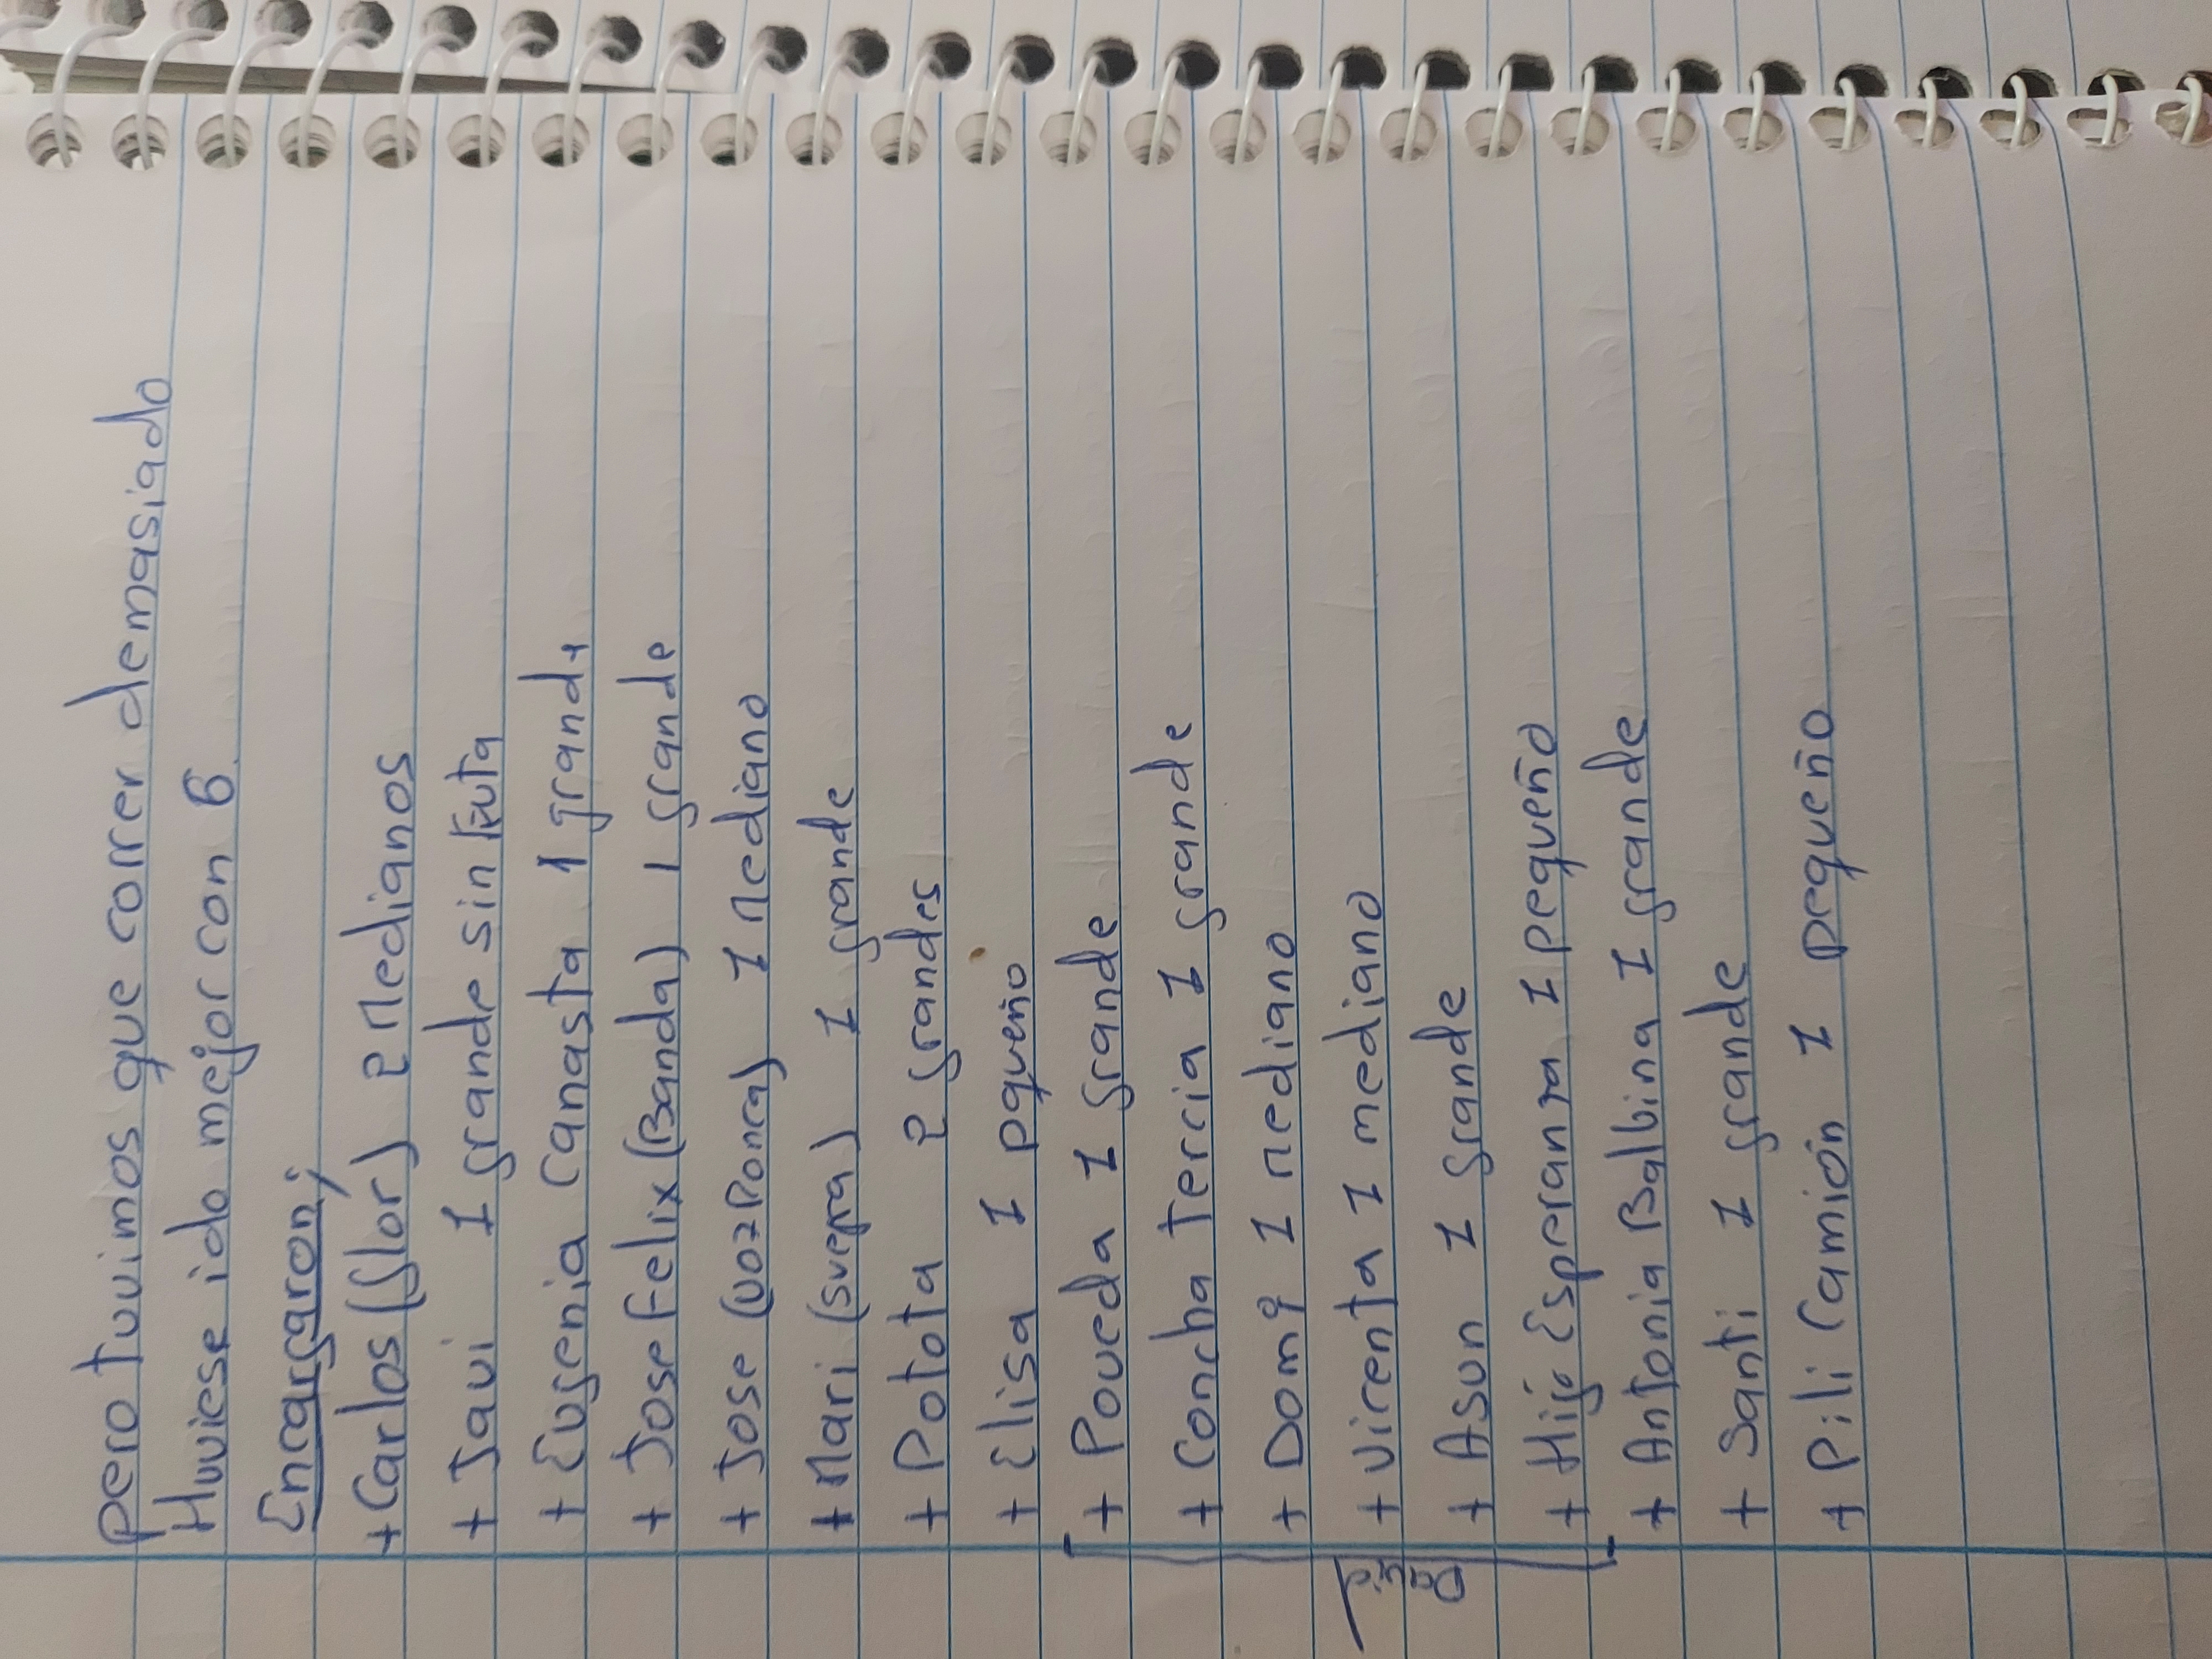 pero tuvimos que correr demasiado
Huviese ido mejor con 6
Encargaron;
+ Carlos (flor) 2 Medianos
+ Javi 1 grande sin fruta
+ Eugenia Canasta 1 grande
+ Jose Felix (Banda) 1 grande
+ Jose (voz Ponca) 1 Mediano
+ Mari (suegra) 1 grande
+ Potota 2 grandes
+ Elisa 1 pqueño
+ Poveda 1 grande
+ Concha Tercia 1 grande
+ Domi 1 Mediano
+ Vicenta 1 mediano
+ Asun 1 grande
+ Hijo Esperanza 1 pequeño
+ Antonia Balbina 1 grande
+ Santi 1 grande
+ Pili Camión 1 pequeño